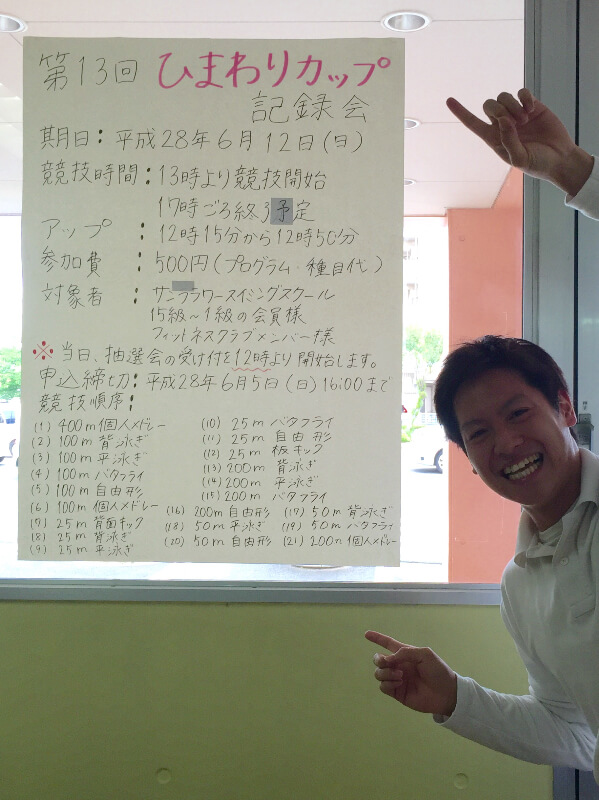 第13回 ひまわりカップ
記録会
期日:平成28年6月12日(日)
競技時間:13時より競技開始
17時ごろ終了予定
アップ : 12時15分から12時50分
参加費 : 500円(プログラム・種目代)
対象者 : サンフラワースイミングスクール
15級~1級の会員様
フィットネスクラブメンバー様
※当日、抽選会の受け付を12時より開始します。
申込締切:平成28年6月5日(日)16:00まで
競技順序:
(1) 400m個人メドレー
(2) 100m 背泳ぎ
(3) 100m 平泳ぎ
(4) 100m バタフライ
(5) 100m 自由形
(6) 100m 個人メドレー
(7) 25m 背面キック
(8) 25m 背泳ぎ
(9) 25m 平泳ぎ
(10) 25m バタフライ
(11) 25m 自由形
(12) 25m 板キック
(13) 200m 背泳ぎ
(14) 200m 平泳ぎ
(15) 200m バタフライ
(16) 200m 自由形 (17) 50m 背泳ぎ
(18) 50m 平泳ぎ (19) 50m バタフライ
(20) 50m 自由形 (21) 200m 個人メドレー